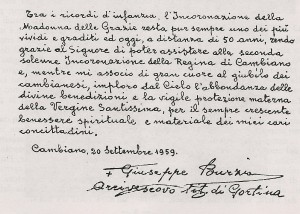 Era i ricordi d'infanza, l'Incoronazione della
Madonna delle Grazie resta pur sempre uno dei più
vividi e graditi ed oggi, a distanza di 50 anni, rendo
grazie al Signore di poter assistere alla seconda
solenne Incoronazione della Regina di Cambiano
e, mentre mi associo di gran cuore al giubilo dei
cambianesi, imploro dal Cielo l'abbondanza delle
divine benedizioni e la vigile protezione materna
della Vergine Santissima, per il sempre crescente
benessere spirituale e materiale dei miei cari
concittadini.
Cambiano, 20 Settembre 1959.
+ Giuseppe Burzio
Arcivescovo tit. di Gortina